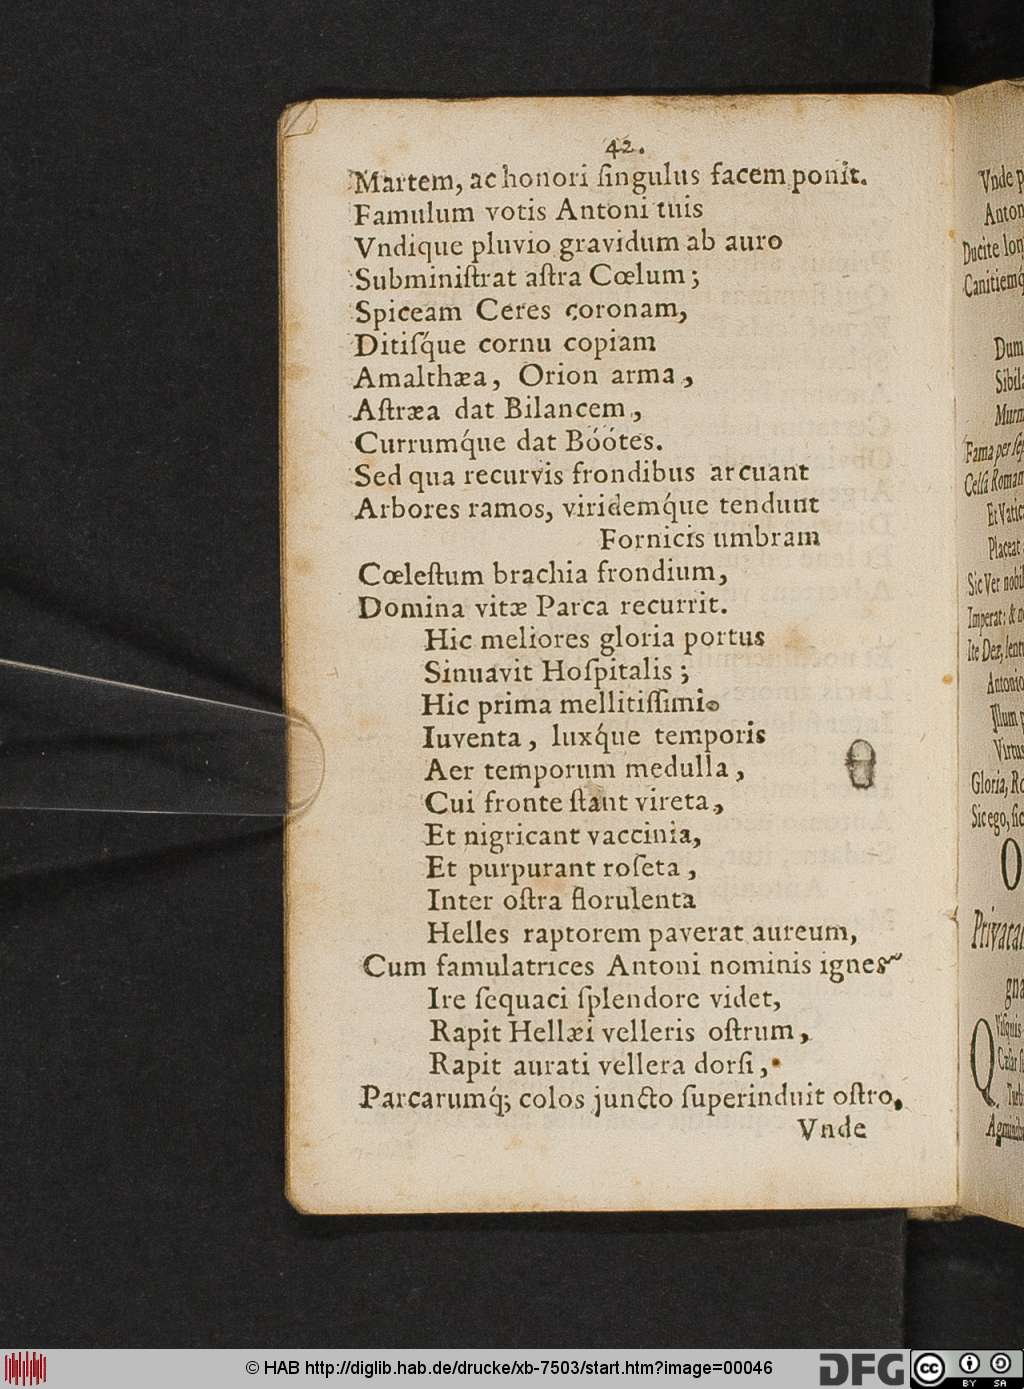 42.
Martem, ac honori ſingulus facem ponit.
Famulum votis Antoni tuis
Vndique pluvio gravidum ab auro
Subminiſtrat aſtra Cœlum;
Spiceam Ceres coronam,
Ditiſq́ue cornu copiam
Amalthæa, Orion arma,
Aſtræa dat Bilancem,
Currumq́ue dat Bóótes.
Sed qua recurvis frondibus arcuant
Arbores ramos, viridemq́ue tendunt
Fornicis umbram
Cœleſtum brachia frondium,
Domina vitæ Parca recurrit.
Hic meliores gloria portus
Sinuavit Hoſpitalis;
Hic prima mellitiſſimi
Iuventa, luxq́ue temporis
Aer temporum medulla,
Cui fronte ſtant vireta,
Et nigricant vaccinia,
Et purpurant roſeta,
Inter oſtra florulenta
Helles raptorem paverat aureum,
Cum famulatrices Antoni nominis ignes
Ire ſequaci ſplendore videt,
Rapit Hellæi velleris oſtrum,
Rapit aurati vellera dorſi,
Parcarumq́; colos juncto ſuperinduit oſtro,
Vnde
Vnde
Ducite
Dum
Fama per
Sic Ver
Ite Deæ,
Illum
Gloria,
Sic ego,
O
Q
© HAB http://diglib.hab.de/drucke/xb-7503/start.htm?image=00046
DFG
cc
BY SA